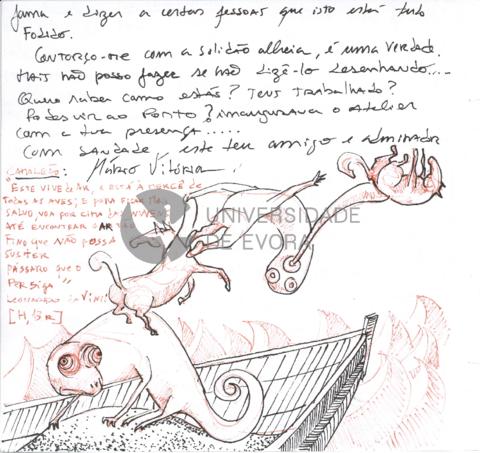 fama e dizer a certas pessoas que isto está tudo
Fodido.
Contorço-me com a solidão alheia, é uma verdade.
Mais não posso fazer se não dizê-lo desenhando....
Quero saber como estás? Tens trabalhado?
Podes vir ao Porto? inaugurava o atelier
com a tua presença.....
Com saudade, este teu amigo e admirador
Mário Vitória
CAMALEÃO:
ESTE VIVE de AR, e está à MERCÊ de
todas as aves; e para ficar mais
salvo, voa por cima das nuvens
até encontrar ar tão
fino que não possa
suster
pássaro que o
persiga"
Leonardo da Vinci
[H,
UNIVERSIDADE
DE ÉVORA